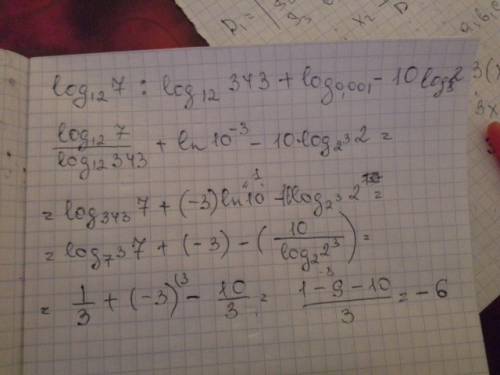 log₁₂7 : log₁₂ 343 + log0,001 - 10 log₈2
log₁₂7 / log₁₂343 + ln 10⁻³ - 10·log₂³ 2 =
= log₃₄₃ 7 + (-3) ln 10 - 10log₂³ 2 =
= log₇³ 7 + (-3) - (10 / log₂2³) =
= 1/3 + (-3) - 10/3 = (1 - 9 - 10) / 3 = - 6